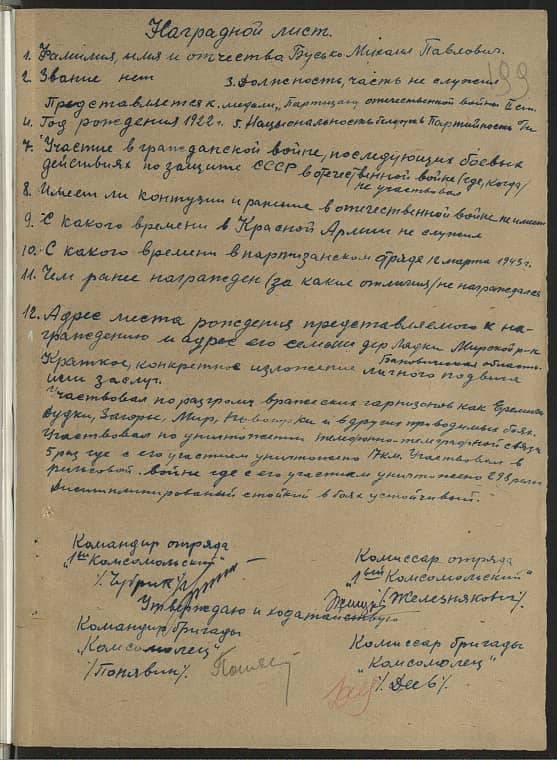 Наградной лист.
199
1. Фамилия, имя и отчества Бусько Михаил Павлович.
2. Звание нет 3. Должность, часть не служил
Представляется к медали „Партизану отечественной войны II ст.
4. Год рождения 1922 г. 5. Национальность Партийность
7. Участие в гражданской войне, последующих боевых
действиях по защите СССР в отечественной войне (где, когда)
не участвовал
8. Имеет ли контузии и ранение в отечественной войне не имеет
9. С какого времени в Красной Армии не служил
10. С какого времени в партизанском отряде 12 марта 1943 г.
11. Чем ранее награжден (за какие отличия) не награждался
12. Адрес места рождения представляемого к на-
граждению и адрес его семьи дер. Лядки Мирской р-н
Барановичская область.
Краткое, конкретное изложение личного подвига
или заслуг.
Участвовал по разгрому вражеских гарнизонов как Еремичи
Рудки, Загорье, Мир, и в других проводимых боях.
Участвовал по уничтожению телефонно-телеграфной связи
5 раз где с его участием уничтожено 17 км. Участвовал в
рельсовой войне где с его участием уничтожено 298 рельс
Дисциплинированый стойкий в боях устойчивый.
Командир отряда
„1ый Комсомольский"
/Чубрик/
Комиссар отряда
„1ый Комсомольский"
/Железнякович/.
Утверждаю и ходатайствую
Командир бригады
„Комсомолец"
/Понявин/.
Комиссар бригады
„Комсомолец"
/Деев/.